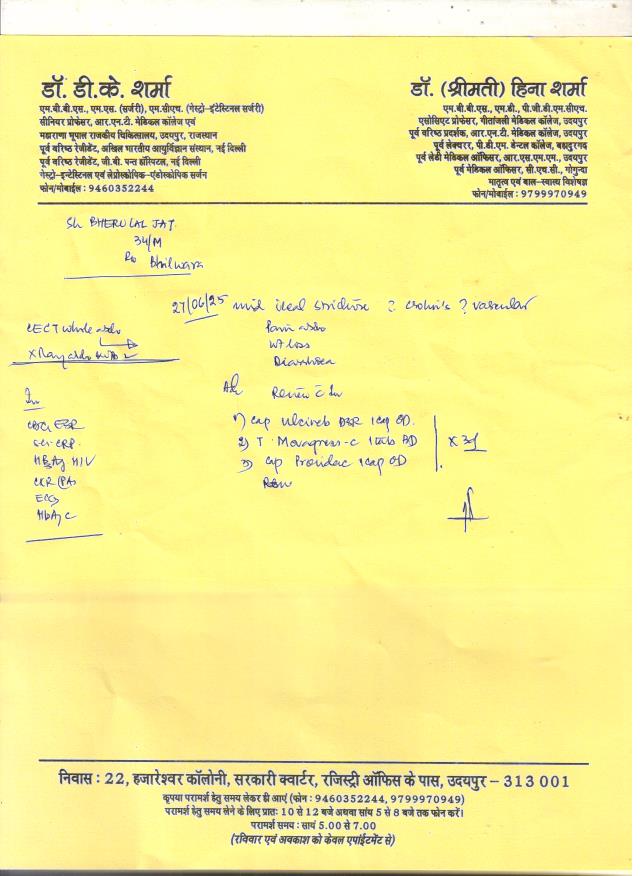 डॉ. डी.के. शर्मा
एम.बी.बी.एस., एम.एस. (सर्जरी), एम.सीएच. (गेस्ट्रो-इंटेस्टिनल सर्जरी)
सीनियर प्रोफेसर, आर.एन.टी. मेडिकल कॉलेज एवं
महाराणा भूपाल राजकीय चिकित्सालय, उदयपुर, राजस्थान
पूर्व वरिष्ठ रेजीडेंट, अखिल भारतीय आयुर्विज्ञान संस्थान, नई दिल्ली
पूर्व वरिष्ठ रेजीडेंट, जी.बी. पन्त हॉस्पिटल, नई दिल्ली
गेस्ट्रो-इन्टेस्टिनल एवं लेप्रोस्कोपिक-एंडोस्कोपिक सर्जन
फोन/मोबाईल : 9460352244
डॉ. (श्रीमती) हिना शर्मा
एम.बी.बी.एस., एम.डी., पी.जी.डी.एम.सीएच.
एसोसिएट प्रोफेसर, गीतांजली मेडिकल कॉलेज, उदयपुर
पूर्व वरिष्ठ प्रदर्शक, आर.एन.टी. मेडिकल कॉलेज, उदयपुर
पूर्व लेक्चरर, पी.डी.एम. डेन्टल कॉलेज, बहादुरगढ़
पूर्व लेडी मेडिकल ऑफिसर, आर.एस.एम.एम., उदयपुर
पूर्व मेडिकल ऑफिसर, सी.एच.सी., गोगुन्दा
मातृत्व एवं बाल-स्वास्थ्य विशेषज्ञ
फोन/मोबाईल : 9799970949
Sh BHERULAL JAT
34/M
R/o Bhilwara
27/06/25 mid ileal stricture ? crohn's ? vascular
Pain abdo
Wt loss
Diarrhoea
CECT whole abdo
X Ray abdo
Adv Review c Inv
Inv
CBC, ESR
CRP
HBsAg HIV
CXR (PA)
ECG
HbA1c
1) Cap DSR 1 cap OD
2) T. 1 tab BD
3) Cap 1 cap OD
निवास : 22, हजारेश्वर कॉलोनी, सरकारी क्वार्टर, रजिस्ट्री ऑफिस के पास, उदयपुर – 313 001
कृपया परामर्श हेतु समय लेकर ही आएं (फोन : 9460352244, 9799970949)
परामर्श हेतु समय लेने के लिए प्रातः 10 से 12 बजे अथवा सांय 5 से 8 बजे तक फोन करें।
परामर्श समय : सायं 5.00 से 7.00
(रविवार एवं अवकाश को केवल एपॉइंटमेंट से)